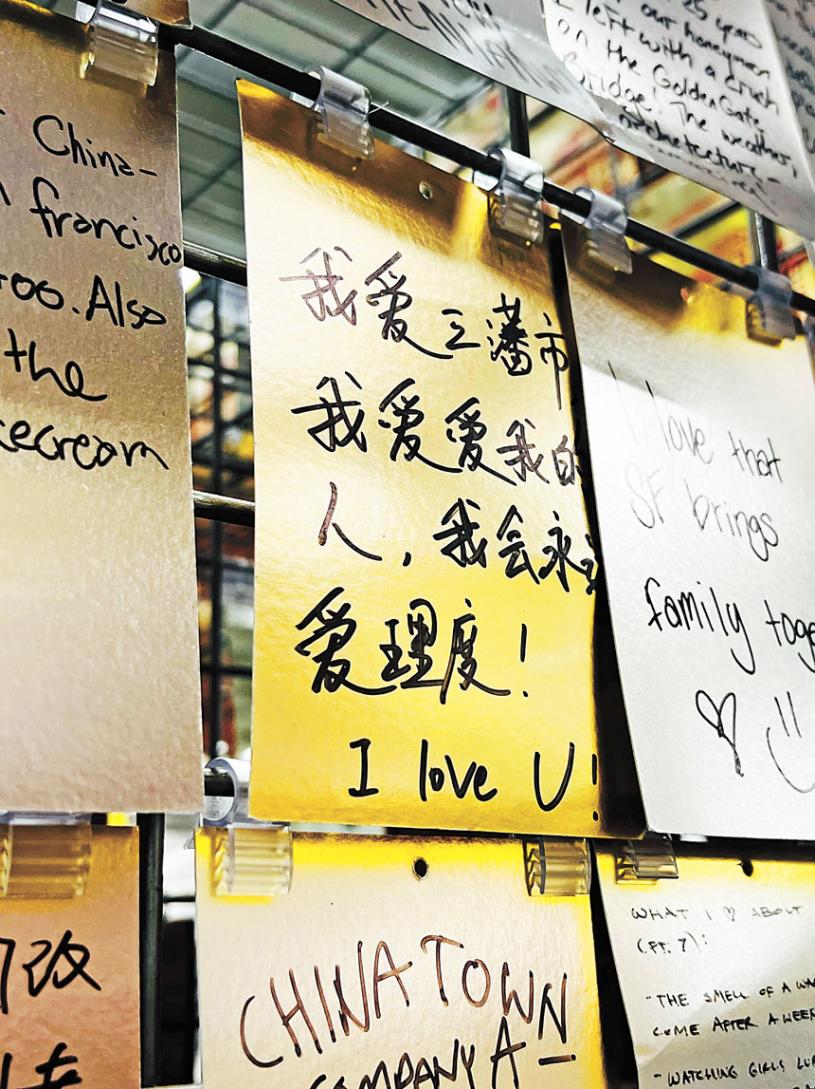 25 years
our honeymoon
I left with a crush
on the Golden Gate
Bridge! The weather,
architecture-
China-
francisco
too. Also
the
icecream
我爱三藩市
我爱爱我的
人，我会永远
爱理度！
I love U!
I love that
SF brings
family toge
♡
改
CHINATOWN
COMPANY A-
WHAT I ♡ ABOUT
(PT. 7):
-THE SMELL OF A
COME AFTER A WEEK
-WATCHING GIRLS